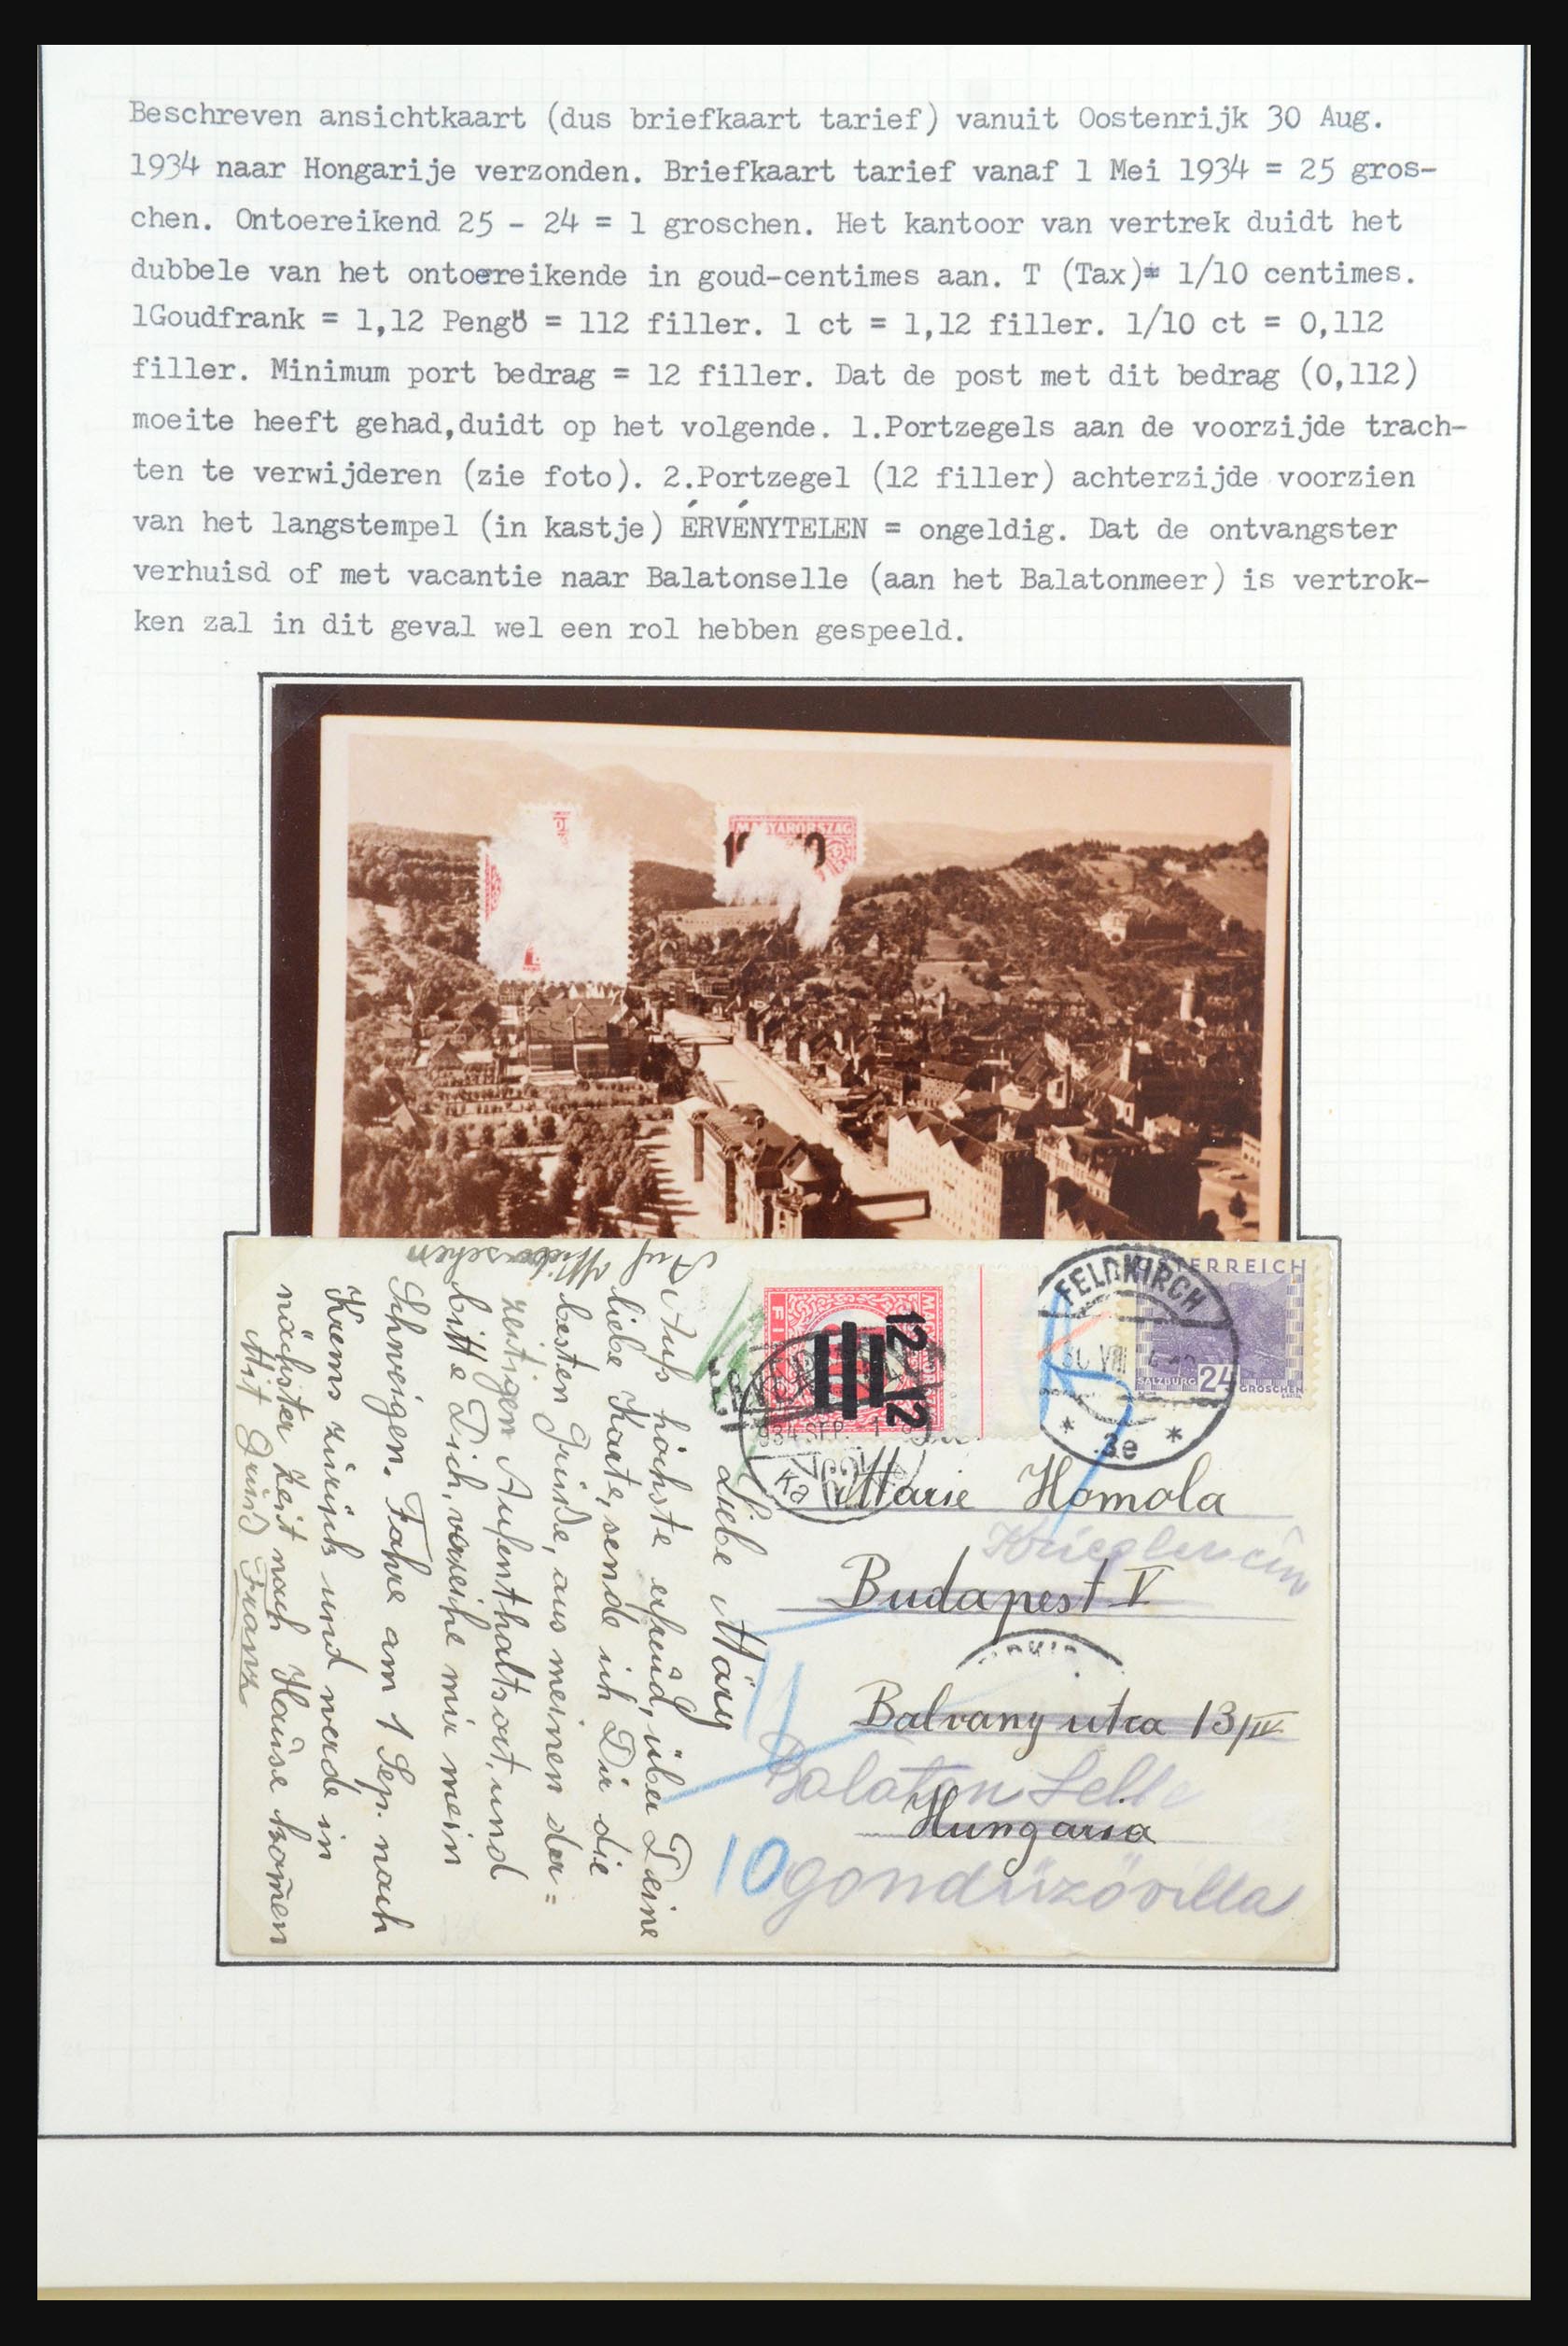 Beschreven ansichtkaart (dus briefkaart tarief) vanuit Oostenrijk 30 Aug.
1934 naar Hongarije verzonden. Briefkaart tarief vanaf 1 Mei 1934 = 25 gros-
chen. Ontoereikend 25 - 24 = 1 groschen. Het kantoor van vertrek duidt het
dubbele van het ontoereikende in goud-centimes aan. T (Tax)= 1/10 centimes.
1Goudfrank = 1,12 Pengö = 112 filler. 1 ct = 1,12 filler. 1/10 ct = 0,112
filler. Minimum port bedrag = 12 filler. Dat de post met dit bedrag (0,112)
moeite heeft gehad,duidt op het volgende. 1.Portzegels aan de voorzijde trach-
ten te verwijderen (zie foto). 2.Portzegel (12 filler) achterzijde voorzien
van het langstempel (in kastje) ÉRVÉNYTELEN = ongeldig. Dat de ontvangster
verhuisd of met vacantie naar Balatonselle (aan het Balatonmeer) is vertrok-
ken zal in dit geval wel een rol hebben gespeeld.
MAGYARORSZÁG
10 10
Liebe Märy
Aufs höchste erfreud, über Deine
liebe Karte, sende ich Dir die
besten Grüsse, aus meinen der=
zeitigen Aufenthaltsort, und
bitte Dich, verzeihe mir mein
Schweigen. Fahre am 1 Sep. nach
Krems zurück und werde in
nächster Zeit nach Hause komen
Mit Gruss Franz
Auf Wiedersehen
12 12
FELDKIRCH
3e
ÖSTERREICH
SALZBURG 24 GROSCHEN
Marie Homola
Budapest V
Balvany utca 13/IV
Balaton Lelle
Hungaria
10